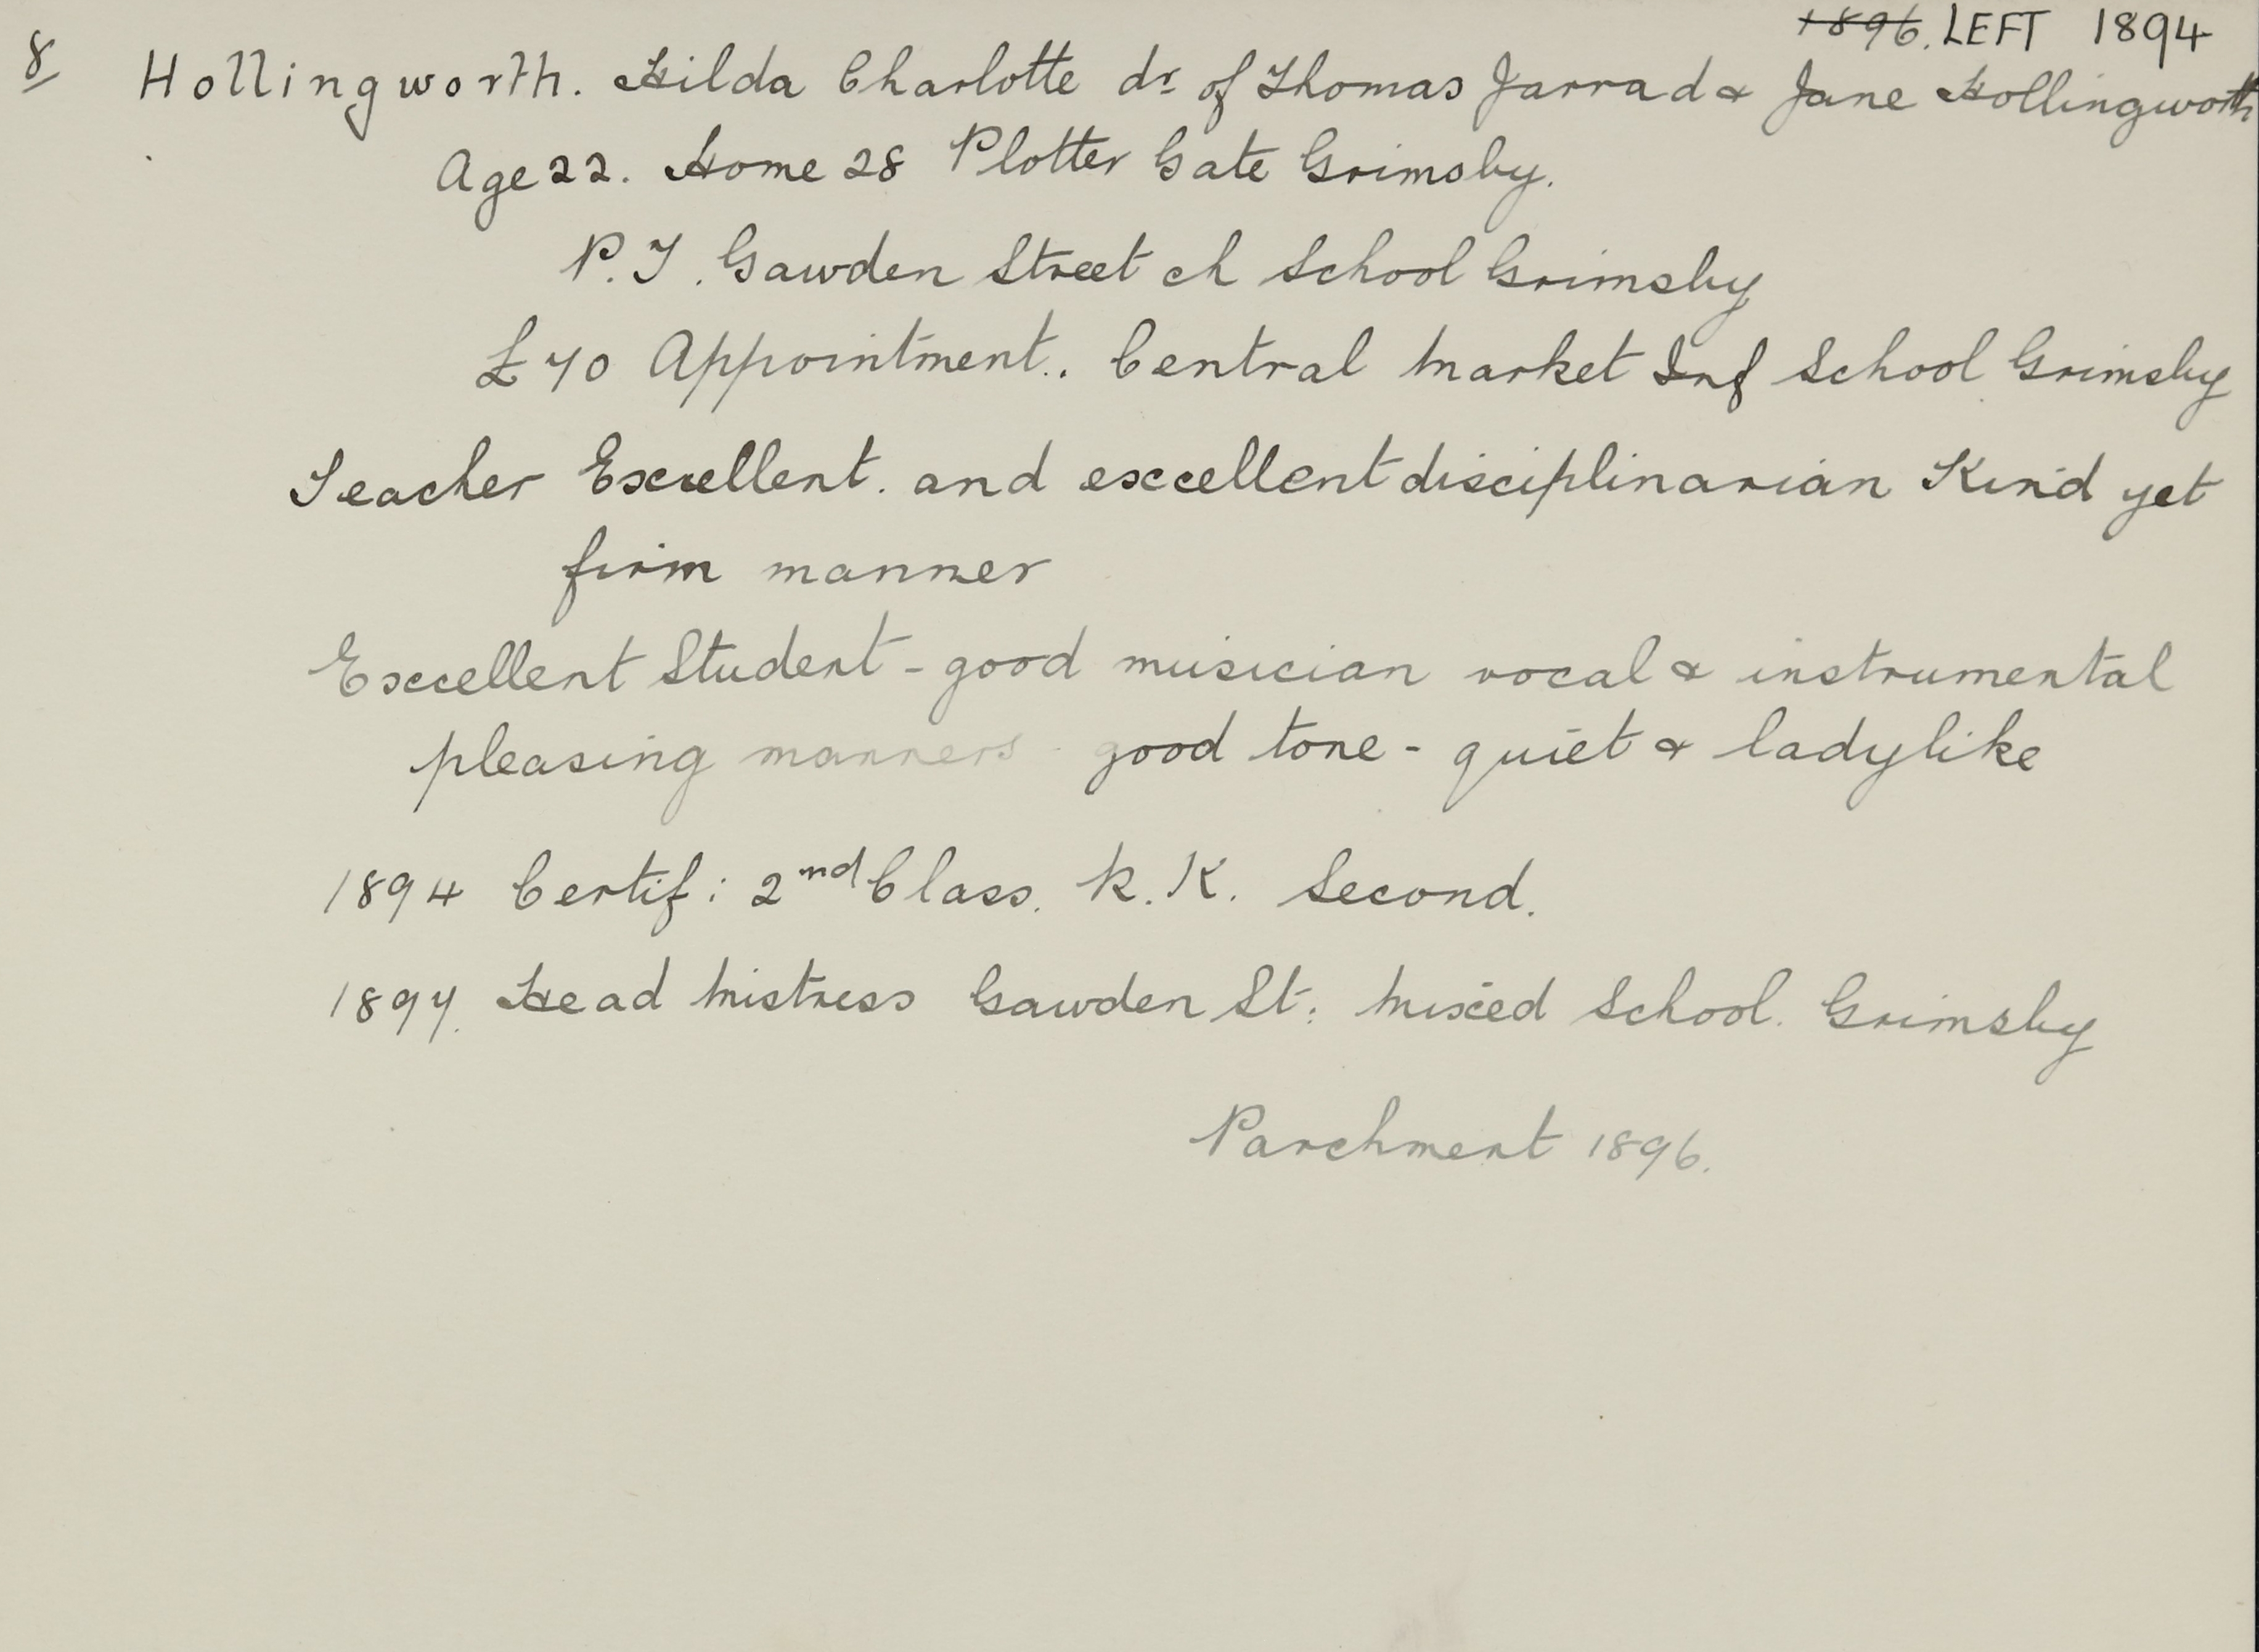 1896. LEFT 1894
8 Hollingworth. Hilda Charlotte dr of Thomas Jarrad & Jane Hollingworth
Age 22. Home 28 Plotter Gate Grimsby.
P.T. Gawden Street ch School Grimsby
£70 Appointment.. Central Market Inf School Grimsby
Teacher Excellent. and excellent disciplinarian Kind yet
firm manner
Excellent Student - good musician vocal & instrumental
pleasing manners - good tone - quiet & ladylike
1894 Certif: 2nd Class. R.K. Second.
1897. Head Mistress Gawden St: Mixed School. Grimsby
Parchment 1896.